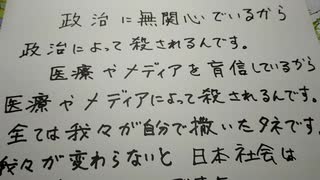 政治に無関心でいるから
政治によって殺されるんです。
医療やメディアを盲信しているから
医療やメディアによって殺されるんです。
全ては我々が自分で撒いたタネです。
我々が変わらないと日本社会は